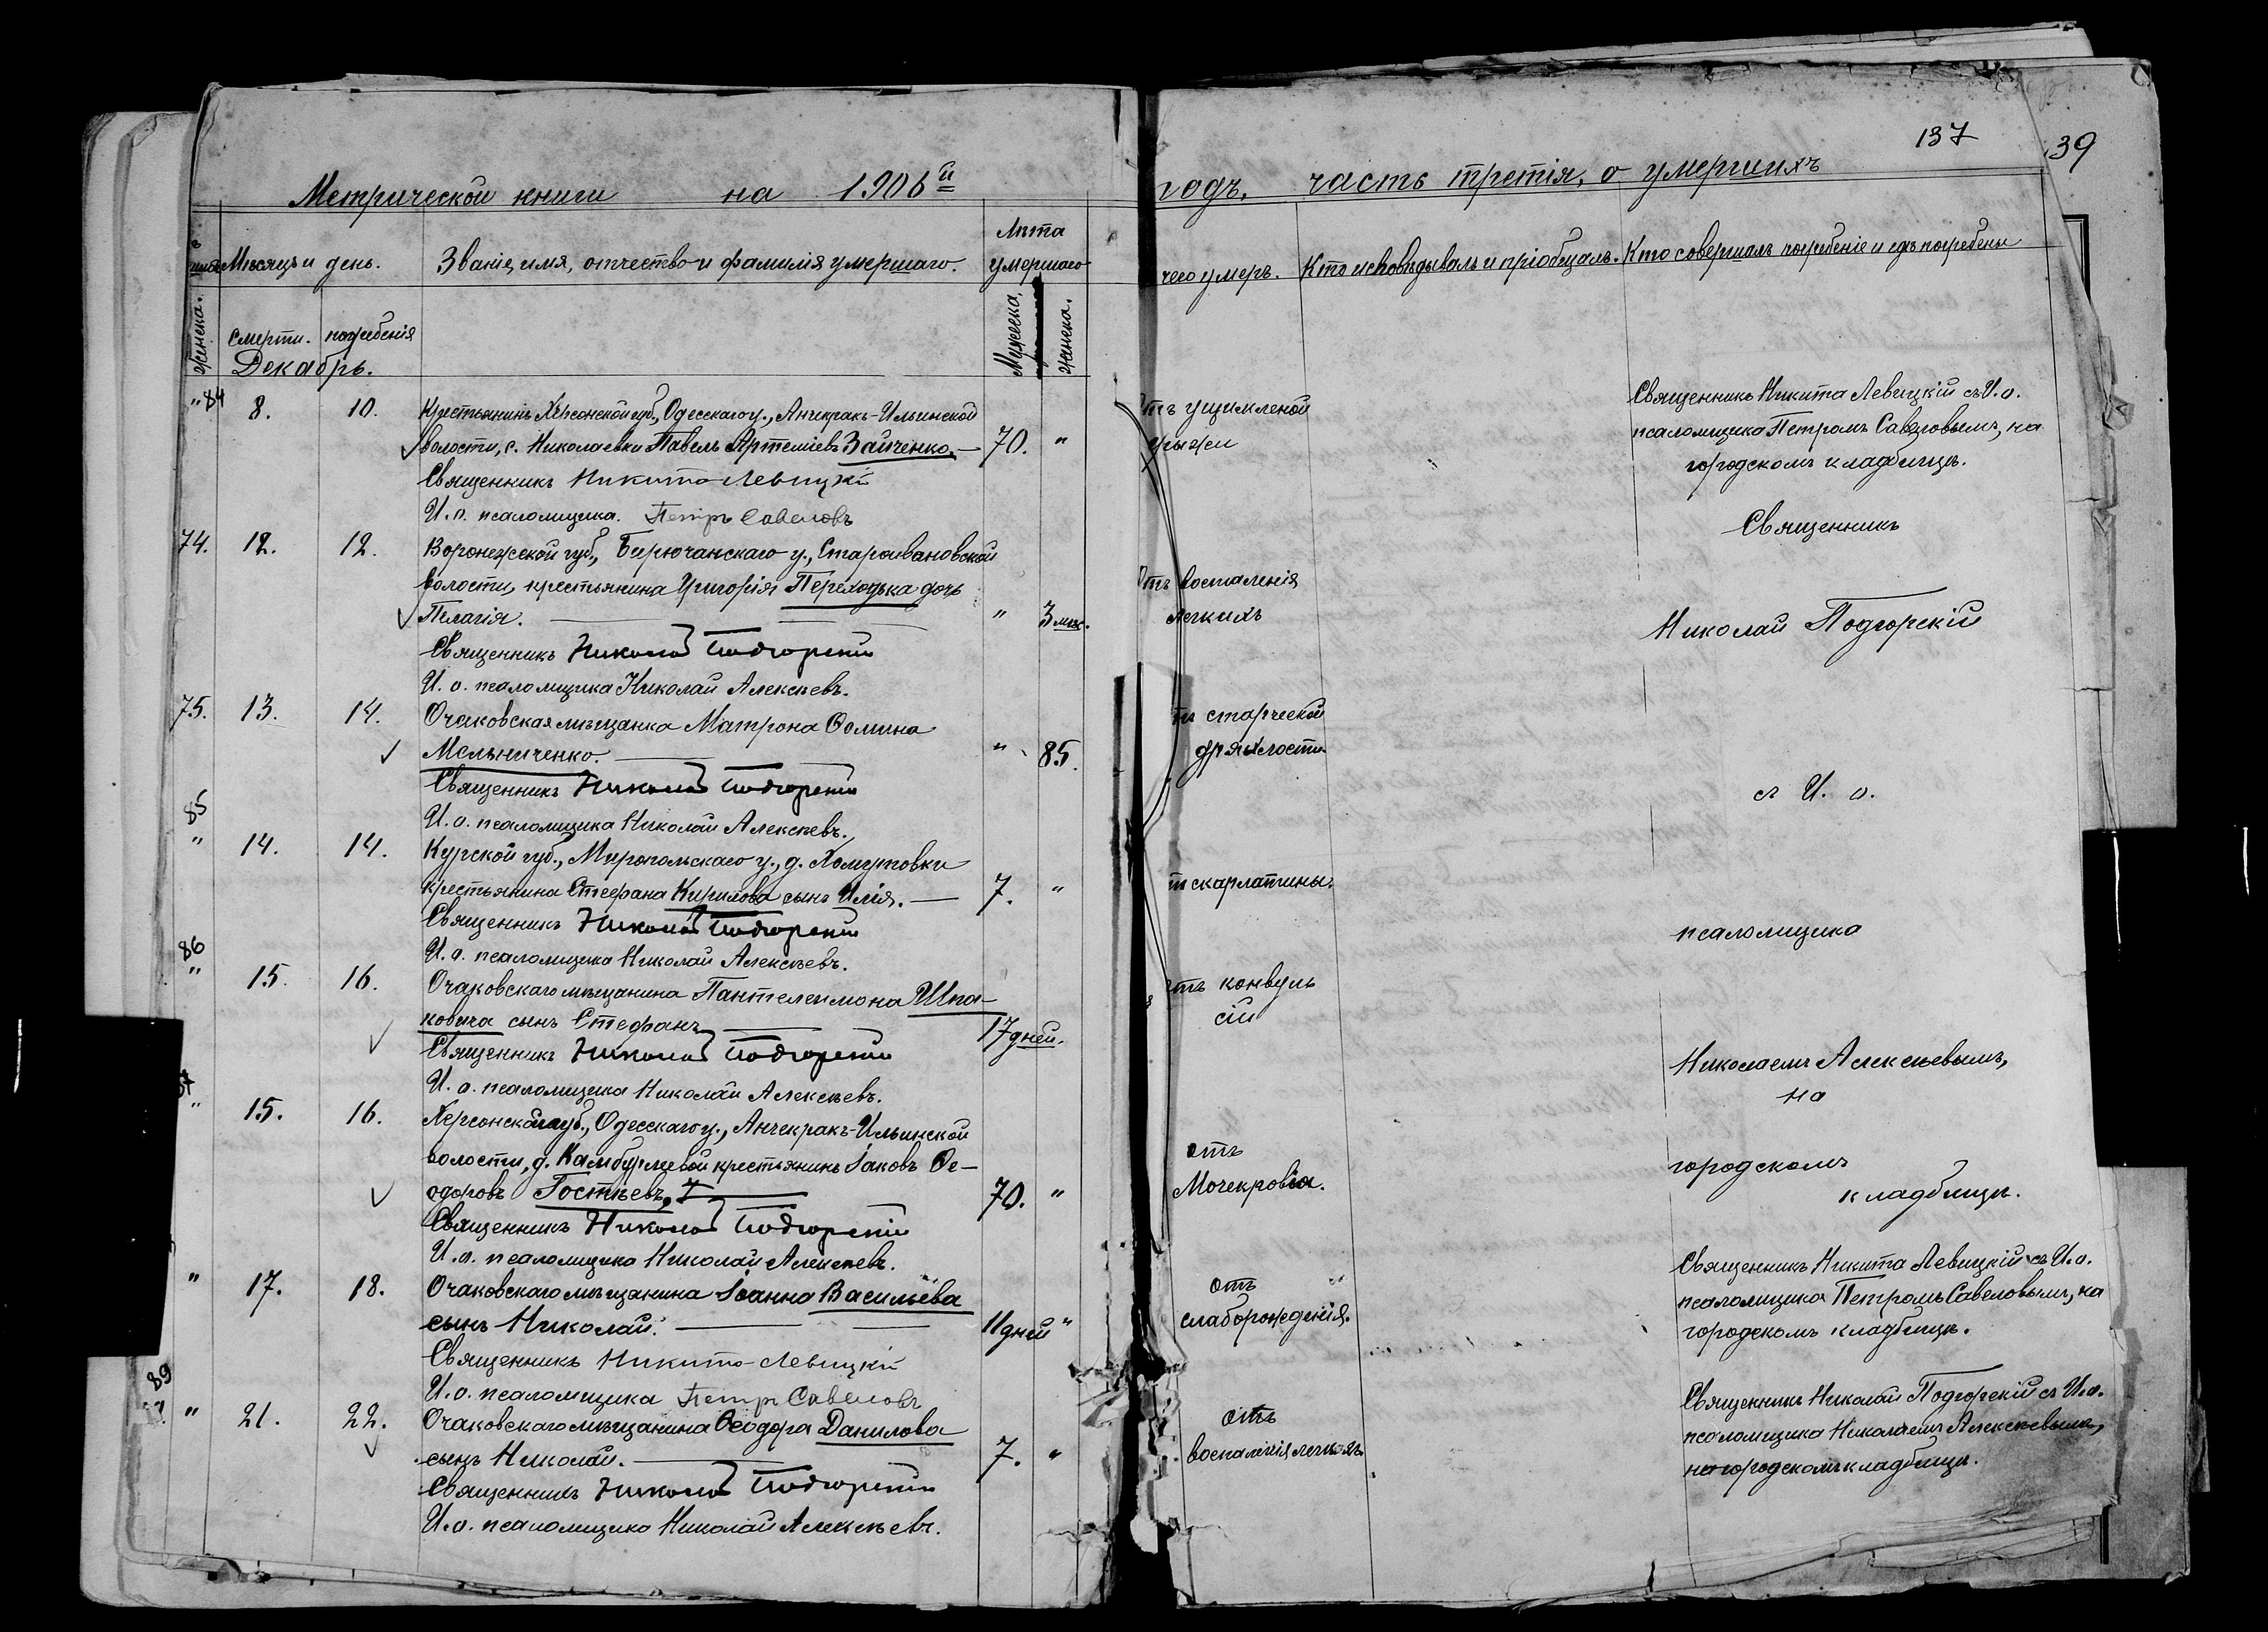 137
39
Метрической книги на 1906й
годъ, часть третія, о умершихъ
Мѣсяцъ и день.
Званіе, имя, отчество и фамилія умершаго.
Лѣта
умершаго
чего умеръ.
Кто исповѣдывалъ и пріобщалъ.
Кто совершалъ погребеніе и гдѣ погребены
женска.
смерти.
погребенія
Мужеска.
женска.
Декабрь.
" 84 8. 10. Крестьянинъ Херсонской губ., Одесскаго у., Анчекракъ-Ильинской
волости, с. Николаевки Павелъ Артеміевъ Зайченко. — 70. "
Священникъ Никита Левицкій
И. о. псаломщика. Петръ Савеловъ
отъ ущимленой
грыжи
Священникъ Никита Левицкій съ И. о.
псаломщика Петромъ Савеловымъ, на
городскомъ кладбищѣ.
74. 12. 12. Воронежской губ., Бирючанскаго у., Староивановской
волости, крестьянина Григорія Переходька дочь
Пелагія. " 3 мѣс.
Священникъ Николай Подгорскій
И. о. псаломщика Николай Алексѣевъ.
отъ воспаленія
легкихъ
Священникъ
Николай Подгорскій
75. 13. 14. Очаковская мѣщанка Матрона Ѳомина
Мельниченко. " 85.
Священникъ Николай Подгорскій
И. о. псаломщика Николай Алексѣевъ.
старческой
дряхлости
съ И. о.
85
" 14. 14. Курской губ., Миропольскаго у., д. Хомутовки
крестьянина Стефана Кирилова сынъ Илія. — 7. "
Священникъ Николай Подгорскій
И. о. псаломщика Николай Алексѣевъ.
скарлатины.
псаломщика
86
" 15. 16. Очаковскаго мѣщанина Пантелеимона Шпа-
ковича сынъ Стефанъ 17 дней.
Священникъ Николай Подгорскій
И. о. псаломщика Николай Алексѣевъ.
отъ конвуль
сій
Николаемъ Алексѣевымъ,
на
" 15. 16. Херсонской губ., Одесскаго у., Анчекракъ-Ильинской
волости, д. Камбурлеевой крестьянинъ Іаковъ Ѳе-
одоровъ Гостѣевъ. 70. "
Священникъ Николай Подгорскій
И. о. псаломщика Николай Алексѣевъ.
отъ
Мочекровія.
городскомъ
кладбищѣ.
" 17. 18. Очаковскаго мѣщанина Іоанна Васильева
сынъ Николай. 11 дней "
Священникъ Никита Левицкій
И. о. псаломщика Петръ Савеловъ
отъ
слаборожденія.
Священникъ Никита Левицкій съ И. о.
псаломщика Петромъ Савеловымъ, на
городскомъ кладбищѣ.
89
" 21. 22. Очаковскаго мѣщанина Ѳеодора Данилова
сынъ Николай. 7. "
Священникъ Николай Подгорскій
И. о. псаломщика Николай Алексѣевъ.
отъ
воспаленія легкихъ
Священникъ Николай Подгорскій съ И. о.
псаломщика Николаемъ Алексѣевымъ,
на городскомъ кладбищѣ.